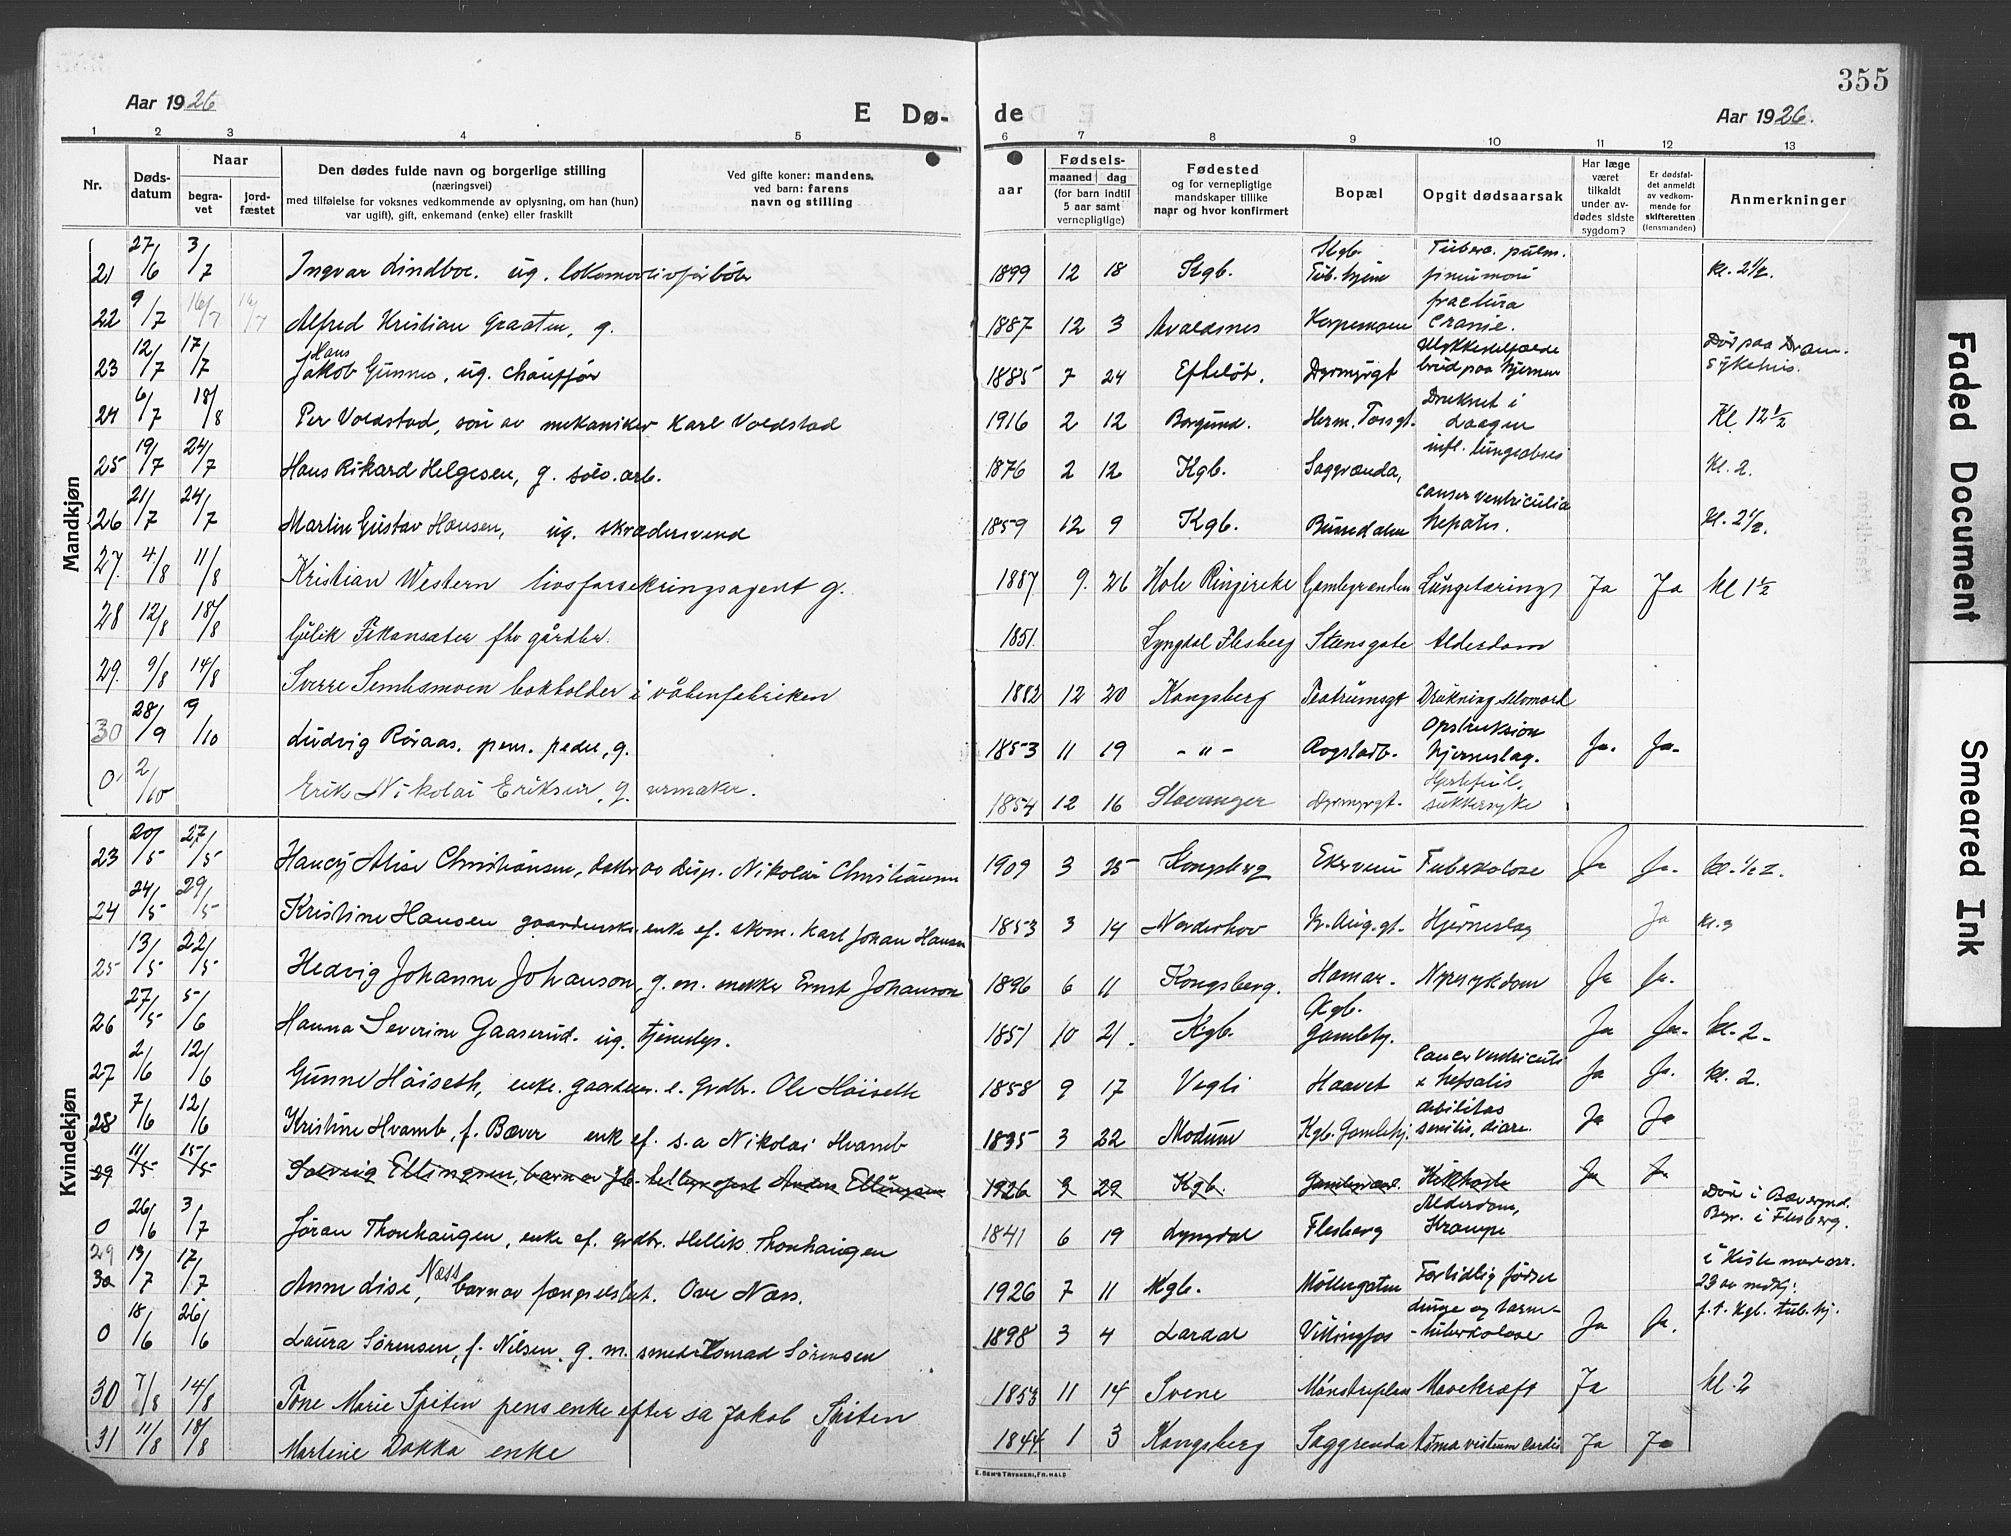 355
Aar 1926
E Dø- de
Aar 1926.
1 2 3 4 5 6 7 8 9 10 11 12 13
Nr.
Døds-
datum
Naar
begra-
vet
jord-
fæstet
Den dødes fulde navn og borgerlige stilling
(næringsvei)
med tilføielse for voksnes vedkommende av oplysning, om han (hun)
var ugift), gift, enkemand (enke) eller fraskilt
Ved gifte koner: mandens,
ved barn: farens
navn og stilling
aar
Fødsels-
maaned dag
(for barn indtil
5 aar samt
vernepligtige)
Fødested
og for vernepligtige
mandskaper tillike
naar og hvor konfirmert
Bopæl
Opgit dødsaarsak
Har læge
været
tilkaldt
under av-
dødes sidste
sygdom?
Er dødsfal-
det anmeldt
av vedkom-
mende for
skifteretten
(lensmanden)
Anmerkninger
Mandkjøn
21 27/6 3/7 Ingvar Lindboe. ug. lokomotivfyrbøter 1899 12 18 Kgb. Kgb. Tub. hjem Tuberc. pulm. pneumoni kl. 2 1/2.
22 9/7 16/7 16/7 Alfred Kristian Graaten, g. 1887 12 3 Avaldsnes fractura Cranie.
23 12/7 17/7 Hans Jakob Gunnes, ug. chauffør 1885 7 24 Efteløt. Dyrmyrgt Ulykkestilfælde brud paa hjernen Død paa Dram. sykehus.
24 6/7 18/8 Per Voldstad, søn av mekaniker Karl Voldstad 1916 2 12 Borgund. Herm. Fossgt. Druknet i Laagen Kl 12 1/2
25 19/7 24/7 Hans Rikard Helgesen, g. sølv. arb. 1876 2 12 Kgb. Saggrenda, infl. lungeabses kl. 2.
26 21/7 24/7 Martin Gustav Hansen, ug. skrædersvend 1859 12 9 Kgb. cancer ventriculi hepatis. kl. 2 1/2.
27. 4/8 11/8 Kristian Western livsforsekringsagent g. 1887 9. 26 Hole Ringerike Gamlegrenden Lungetæring Ja Ja kl 1 1/2
28 12/8 18/8 fhv gårdbr. 1851. Lyngdal Flesberg Steensgate Alderdom
29. 9/8 14/8 Sverre Sembsmoen bokholder i våbenfabriken 1882 12 20 Kongsberg Teatrumsgt Drukning selvmord
30 28/9 9/10 Ludvig Røraas. pens. pedel, g. 1853 11 19 - " - Rogstadb. Opstruksion hjerneslag. Ja. Ja.
0 2/10 Erik Nikolai Eriksen, g. urmaker. 1854 12 16 Stavanger Dyrmyrgt. Hjertefeil. sukkersyke
Kvindekjøn
23 20/5 27/5 Haucy Alise Christiansen, datter av disp. Nikolai Christiansen 1909 3 25 Kongsberg Tuberkolose Ja Ja. kl. 1/2 2.
24 24/5 29/5 Kristine Hansen gaardmsk. enke ef. skom. Karl Johan Hansen 1853 3 14 Norderhov Kr. Aug. gt. Hjerneslag Ja kl. 3
25 13/5 22/5 Hedvig Johanne Johanson, g. m. snekker Ernst Johanson 1896 6 11 Kongsberg. Hamar. Nyresykdom Ja Ja.
26 27/5 5/6 Hanna Severine Gaaserud. ug. tjenestep. 1851 10 21. Kgb. Kgb. Gamlehj. Ja Ja. kl. 2.
27 2/6 12/6 Gunne Høiseth, enke. gaardm. e. grdbr. Ole Høiseth 1858 9 17 Vegli Haavet Cancer ventriculi & hepatis Ja Ja. kl. 2.
28 7/6 12/6 Kristine Hvamb, f. Bæver enk ef. s.a Nikolai Hvamb 1835 3 22 Modum Kgb. Gamlehj. debilitas senilis, diare. Ja Ja
29 11/5 15/5 Solveig Ellingsen, barn av jb. telegrafist Anders Ellingsen 1926 3 29 Kgb. Kikhoste Ja Ja
0 26/6 3/7 Jøran Thonhaugen, enke ef. grdbr. Hellik Thonhaugen 1841 6 19 Lyngdal Flesberg Alderdom, Krampe Død i Bævergrd. Begr. i Flesberg.
29 30 13/7 17/7 Anne Lise Næss, barn av fængselsbet. Ove Næss. 1926 7 11 Kgb. Møllergaten For tidlig fødsel i kiste med nr. 23 av mdkj.
0 18/6 26/6 Laura Sørensen, f. Nilsen g. m. smed Konrad Sørensen 1898 3 4 Lardal Vittingfos Lunge og tarm-tuberkolose Ja Ja. f. t. Kgb. tub. hj.
30 7/8 14/8 Tone Marie Spiten pens enke efter sa Jakob Spiten 1853 11 14 Svene Mønsterplan Mavekræft Ja kl. 2
31 11/8 18/8 Martine Dokka enke 1844 1 3 Kongsberg Saggrenda Ja Ja
E. SEM'S TRYKKERI, FR.HALD
Faded Document
Smeared Ink